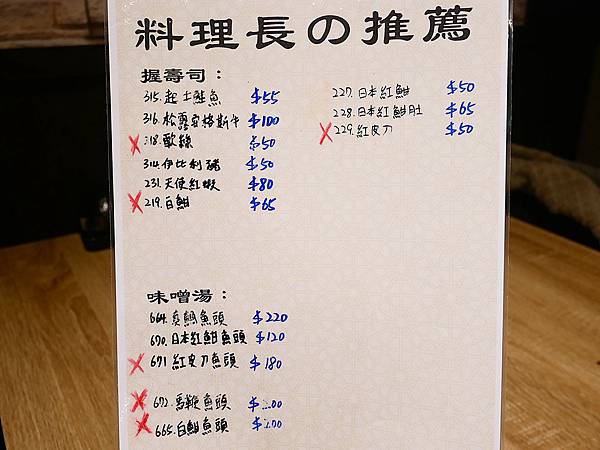 料理長の推薦
握壽司：
315.起士鮭魚 $55
316.松露安格斯牛 $100
318.軟絲 $50
314.伊比利豬 $50
231.天使紅蝦 $80
219.白魽 $65
227.日本紅魽 $50
228.日本紅魽肚 $65
229.紅皮刀 $50
味噌湯：
664.真鯛魚頭 $220
670.日本紅魽魚頭 $120
671.紅皮刀魚頭 $180
672.馬鞭魚頭
665.白魽魚頭